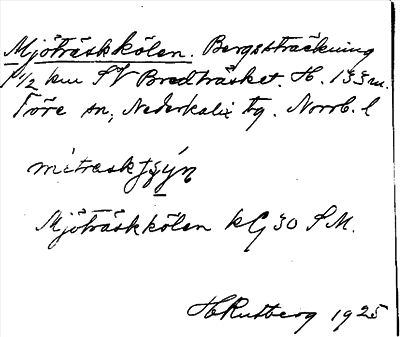 Mjöträskkölen. Bergssträckning
1 1/2 km SV Bredträsket. H. 133 m.
Töre sn, Nederkalix tg. Norrb. l
Mjöträskkölen kG 30 S M.
H Rutberg 1925